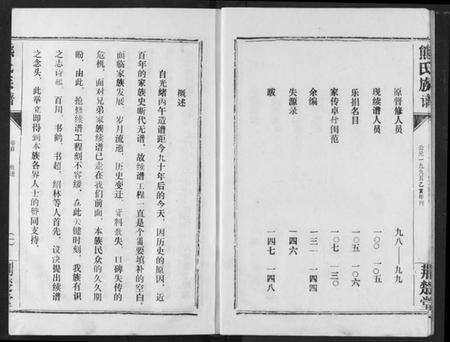 熊氏族谱
公元一九九五乙亥年刊
荆楚堂
原督修人员 九八—九九
现续谱人员 一〇〇—一〇五
乐捐名目 一〇五—一〇六
家传卓卄闺范 一〇七—一三〇
余编 一三一—一四四
失源录 一四六
跋 一四七—一四八
概述
自光绪丙午造谱距今九十年后的今天，因历史的原因，近
百年的家族史断代无谱，故续谱工程一直是个需要填补的空白，
面临家族发展，岁月流逝，历史变迁，资料散失，口碑失传的
危机，面对兄弟家族续谱已走在我们前面，本族民众的久久期
盼，由此，抢修续谱工程刻不容缓，在此关键时刻，我族有识
之志 百川、书鹤、书超、绍林等人首先，议决提出续谱
之念头，此举立即得到本族各界人士的赞同支持